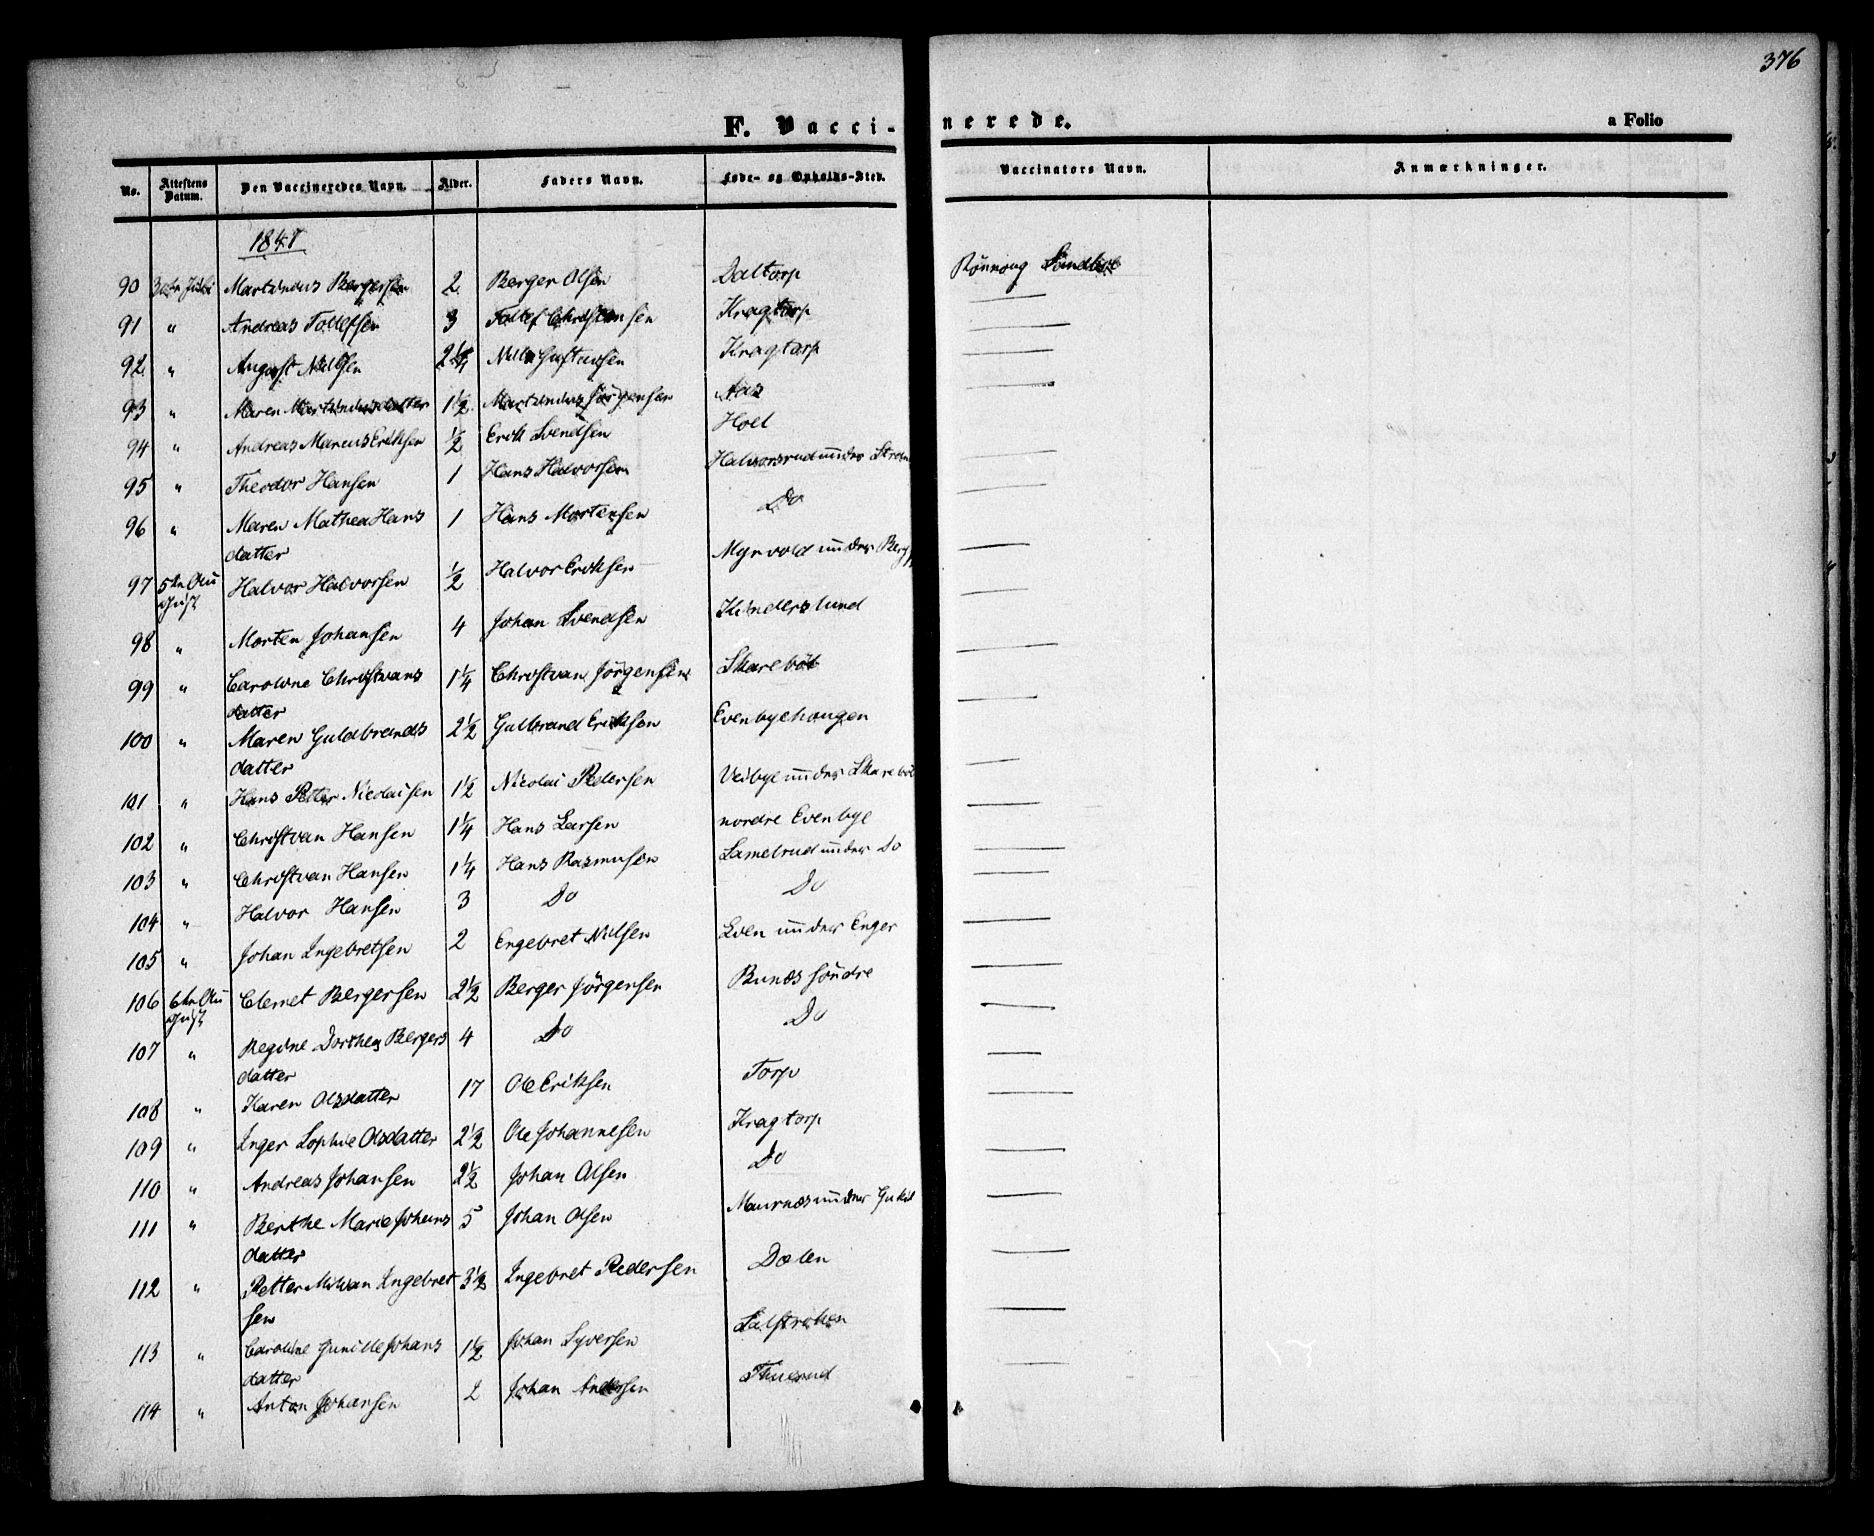 376
F. Vacci-nerede.
a Folio
No. Attestens Datum. Den Vaccineredes Navn. Alder. Faders Navn. Føde- og Opholds-Sted. Vaccinators Navn. Anmærkninger.
1847
90 Martinius Bergersen 2 Berger Olsen Daltorp Rønnoug
91 " Andreas Tollefsen 3 Tollef Christensen Kragtorp
92 " August Nilsen 2 1/4 Nils Gustavsen Kragtorp
93 " Maren Martinusdatter 1 1/2 Martinius Jörgensen Aas
94 " Andreas Marcus Eriksen 1/2 Erik Svendsen Hoel
95 " Theodor Hansen 1 Hans Halvorsen Halvorsrud under
96 " Maren Mathea Hans 1 Hans Mortensen Do
datter
97 5te Au Halvor Halvorsen 1/2 Halvor Eriksen Myrvold under Berg
gust
98 " Morten Johansen 4 Johan Svendsen
99 " Caroline Christians 1 1/4 Christian Jörgensen Skareböl
datter
100 " Maren Guldbrands 2 1/2 Gulbrand Eriksen Evenbyehaugen
datter
101 " Hans Petter Nicolaisen 1 1/2 Nicolai Pedersen Veibye under Skareböl
102 " Christian Hansen 1 1/4 Hans Larsen nordre Evenbye
103 " Christian Hansen 1 1/4 Hans Rasmusen Samelrud under Do
104 " Halvor Hansen 3 Do Do
105 " Johan Ingebretsen 2 Engebret Nilsen Even under Enger
106 6te Au Clemet Bergersen 2 1/2 Berger Jörgensen Bunæs söndre
gust
107 " Regine Dorthea Bergers 4 Do Do
datter
108 " Karen Olsdatter 17 Ole Eriksen Torp
109 " Inger Sophie Olsdatter 2 1/2 Ole Johannesen Kragtorp
110 " Andreas Johansen 2 1/2 Johan Olsen Do
111 " Berthe Marie Johans 5 Johan Olsen Maurnæs under
datter
112 " Petter Milian Ingebret 3 1/2 Ingebret Pedersen Dælen
sen
113 " Caroline Gunille Johans 1 1/2 Johan Syversen
datter
114 " Anton Johansen 2 Johan Andersen Thuerud